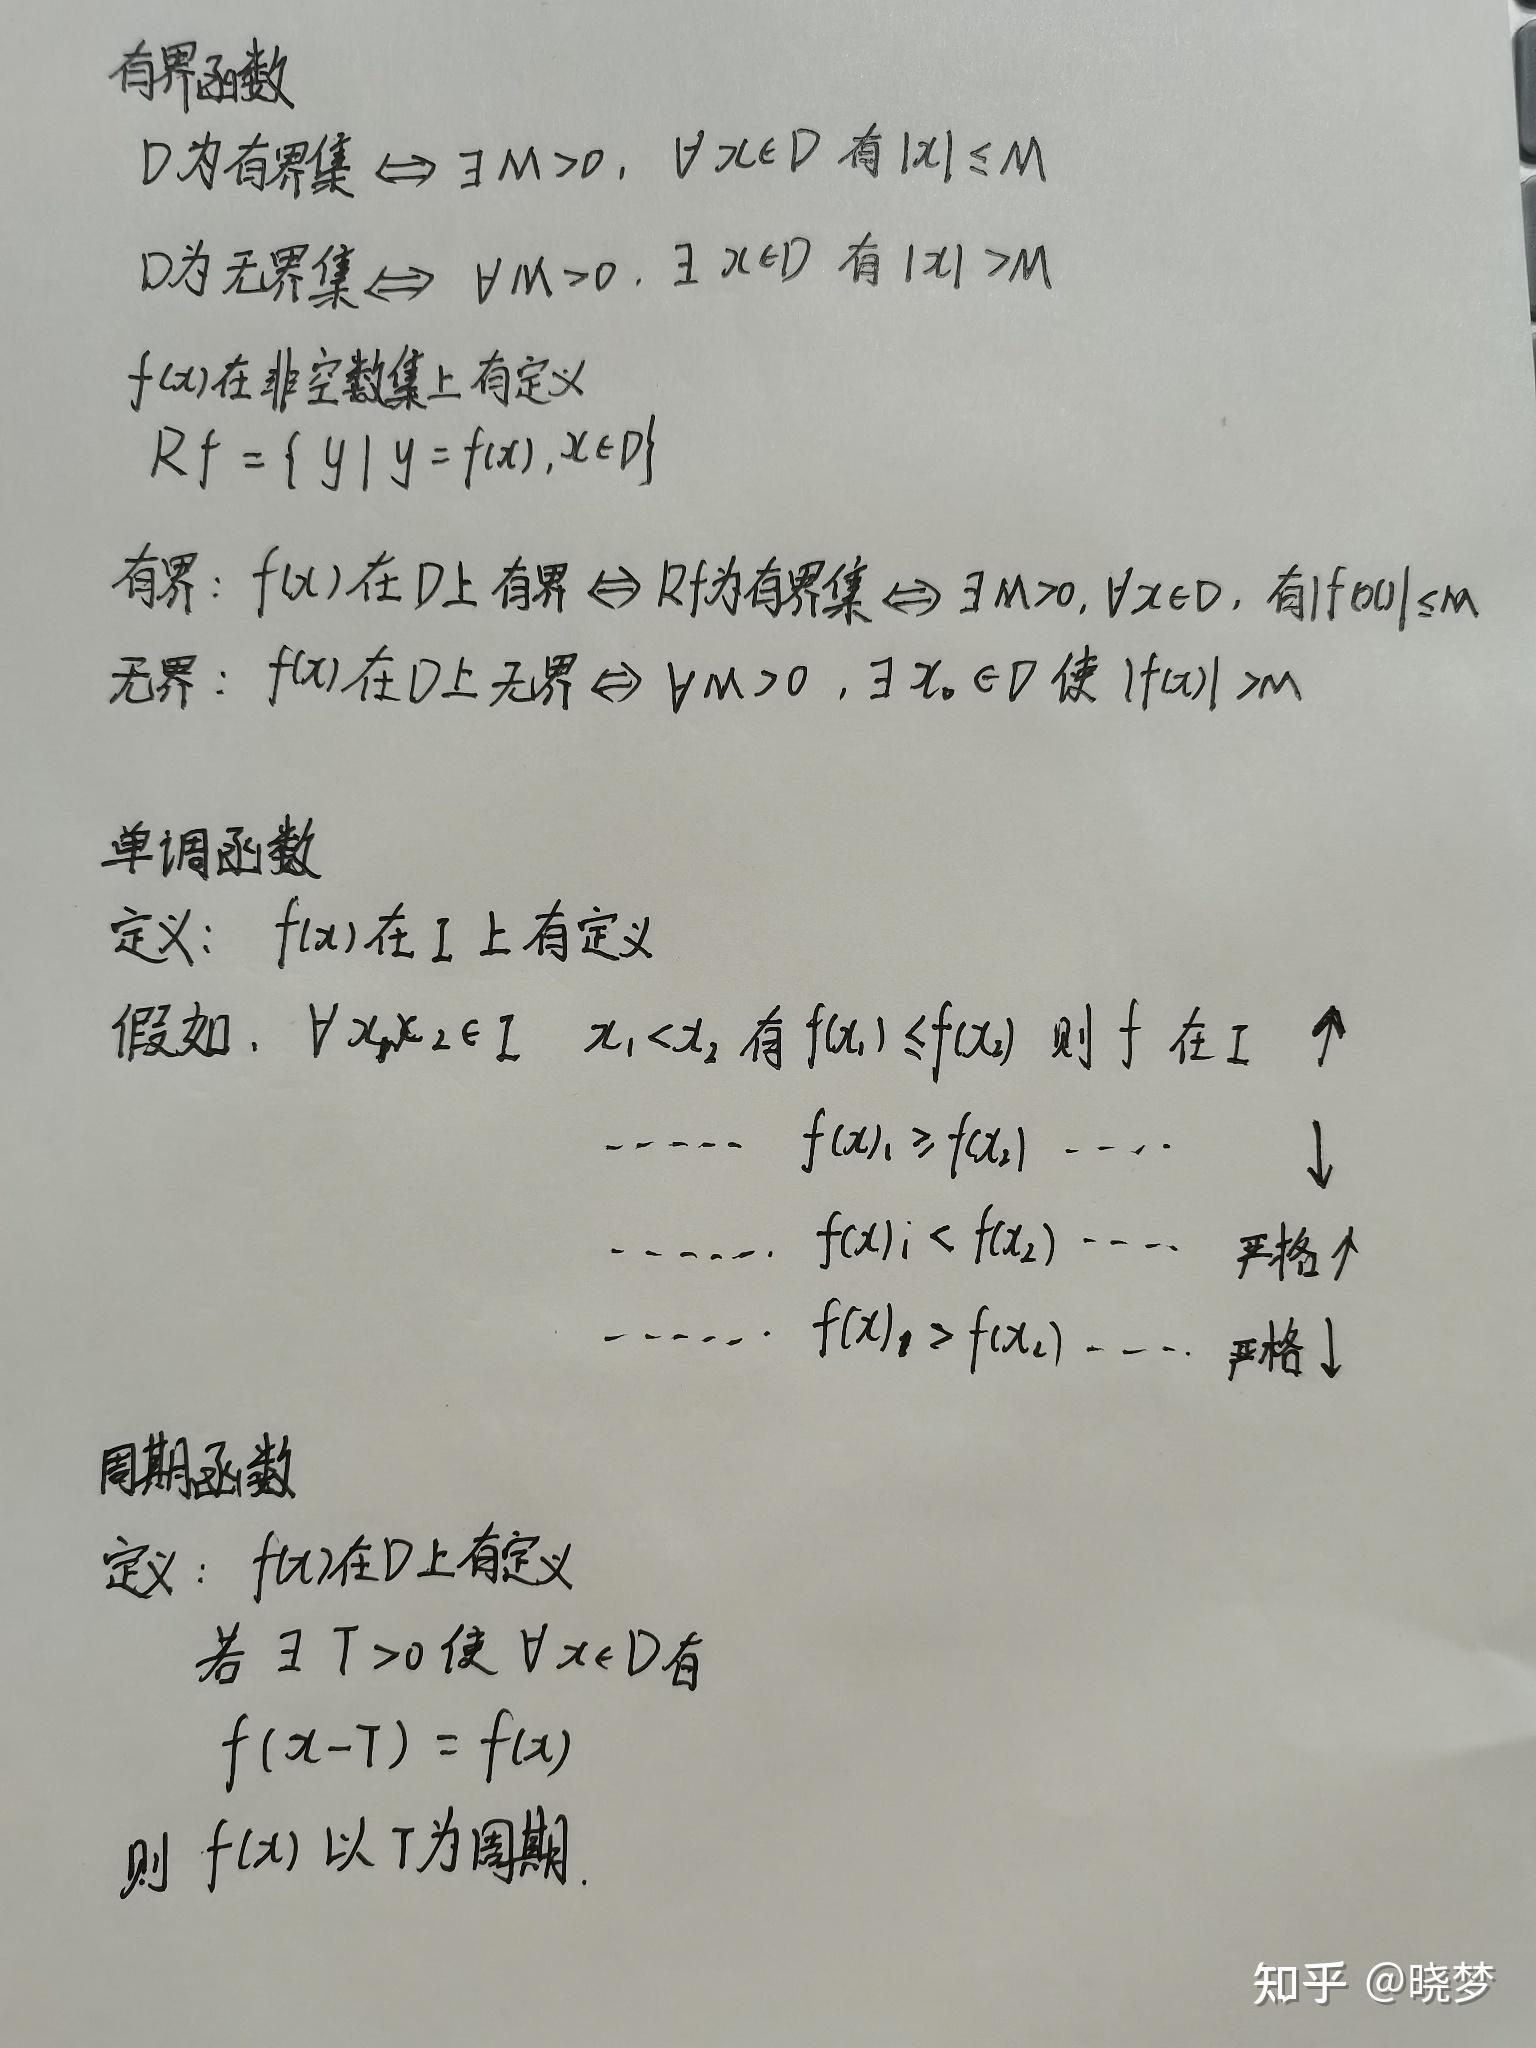 有界函数
D为有界集 ⇔ ∃ M>0, ∀ x∈D 有 |x| ≤ M
D为无界集 ⇔ ∀ M>0, ∃ x∈D 有 |x| > M
f(x)在非空数集上有定义
Rf = { y | y = f(x), x∈D}
有界: f(x) 在D上有界 ⇔ Rf为有界集 ⇔ ∃ M>0, ∀x∈D, 有|f(x)| ≤ M
无界: f(x) 在D上无界 ⇔ ∀ M>0, ∃ x₀ ∈ D 使 |f(x)| > M
单调函数
定义: f(x) 在 I 上有定义
假如, ∀ x₁,x₂ ∈ I x₁ < x₂ 有 f(x₁) ≤ f(x₂) 则 f 在 I ↑
----- f(x)₁ ≥ f(x₂) ---- ↓
------ f(x)₁ < f(x₂) ---- 严格↑
------ f(x)₁ > f(x₂) ---- 严格↓
周期函数
定义: f(x)在D上有定义
若 ∃ T>0 使 ∀ x∈D有
f(x-T) = f(x)
则 f(x) 以 T为周期.
知乎 @晓梦